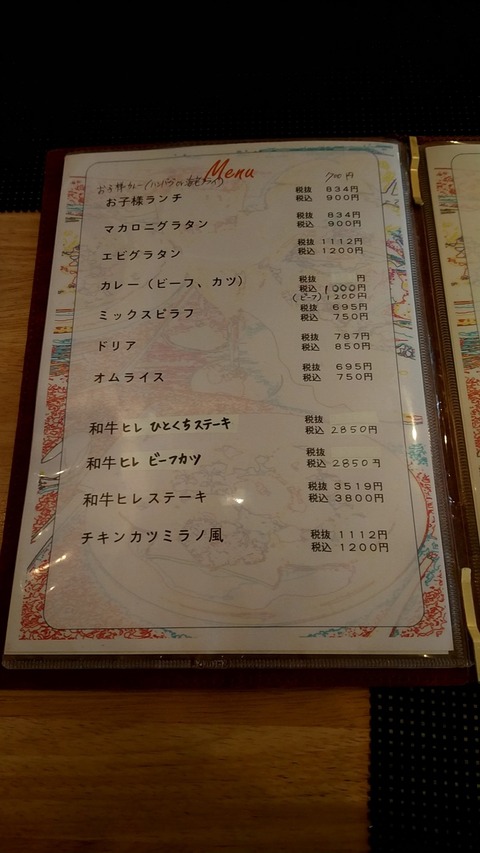 Menu
お子様カレー(ハンバーグor海老フライ) 700円
お子様ランチ 税抜 834円
税込 900円
マカロニグラタン 税抜 834円
税込 900円
エビグラタン 税抜 1112円
税込 1200円
カレー（ビーフ、カツ） 税抜 円
税込 1000円
(ビーフ) 1200円
ミックスピラフ 税抜 695円
税込 750円
ドリア 税抜 787円
税込 850円
オムライス 税抜 695円
税込 750円
和牛ヒレ ひとくちステーキ 税抜
税込 2850円
和牛ヒレ ビーフカツ 税抜
税込 2850円
和牛ヒレステーキ 税抜 3519円
税込 3800円
チキンカツミラノ風 税抜 1112円
税込 1200円